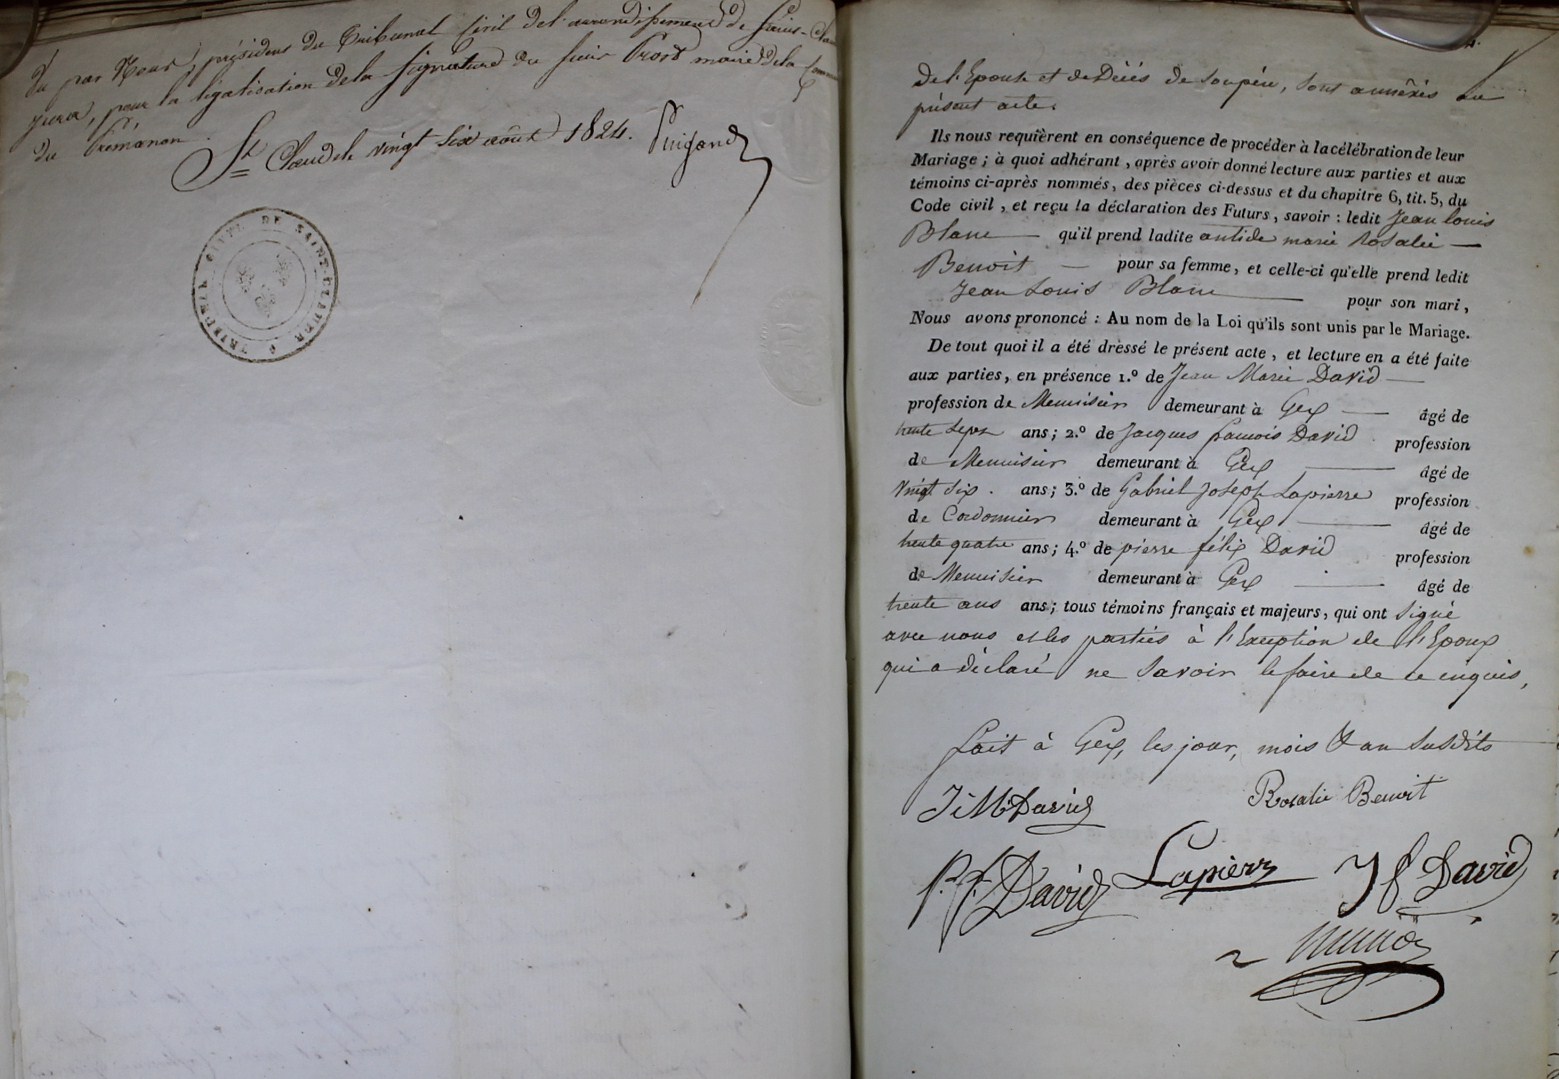 Vu par Nous, président du Tribunal Civil de l'arrondissement de Saint-Claude
Jura, pour la légalisation de la signature du sieur Prost maire de la
de Prémanon.
St Claude le vingt six août 1824. Puigand
TRIBUNAL CIVIL DE SAINT-CLAUDE
de l'Epouse et de Décés de son père, sont annêxés au
présent acte.
Ils nous requièrent en conséquence de procéder à la célébration de leur
Mariage ; à quoi adhérant, après avoir donné lecture aux parties et aux
témoins ci-après nommés, des pièces ci-dessus et du chapitre 6, tit. 5, du
Code civil, et reçu la déclaration des Futurs, savoir : ledit Jean Louis
Blanc — qu'il prend ladite antide marie Rosalie —
Benoit — pour sa femme, et celle-ci qu'elle prend ledit
Jean Louis Blanc — pour son mari,
Nous avons prononcé : Au nom de la Loi qu'ils sont unis par le Mariage.
De tout quoi il a été dressé le présent acte, et lecture en a été faite
aux parties, en présence 1.º de Jean Marie David —
profession de Menuisier demeurant à Gex — âgé de
trente sept ans ; 2.º de Jacques francois David profession
de Menuisier demeurant à Gex — âgé de
vingt six. ans ; 3.º de Gabriel Joseph Lapierre profession
de Cordonnier demeurant à Gex — âgé de
trente quatre ans ; 4.º de pierre félix David profession
de Menuisier demeurant à Gex — âgé de
trente ans ans ; tous témoins français et majeurs, qui ont signé
avec nous et les parties à l'Exception de l'Epoux
qui a déclaré ne savoir le faire de ce enquis,
fait à Gex, les jour, mois & an susdits
J M David Rosalie Benoit
P. F. David Lapierre J f David